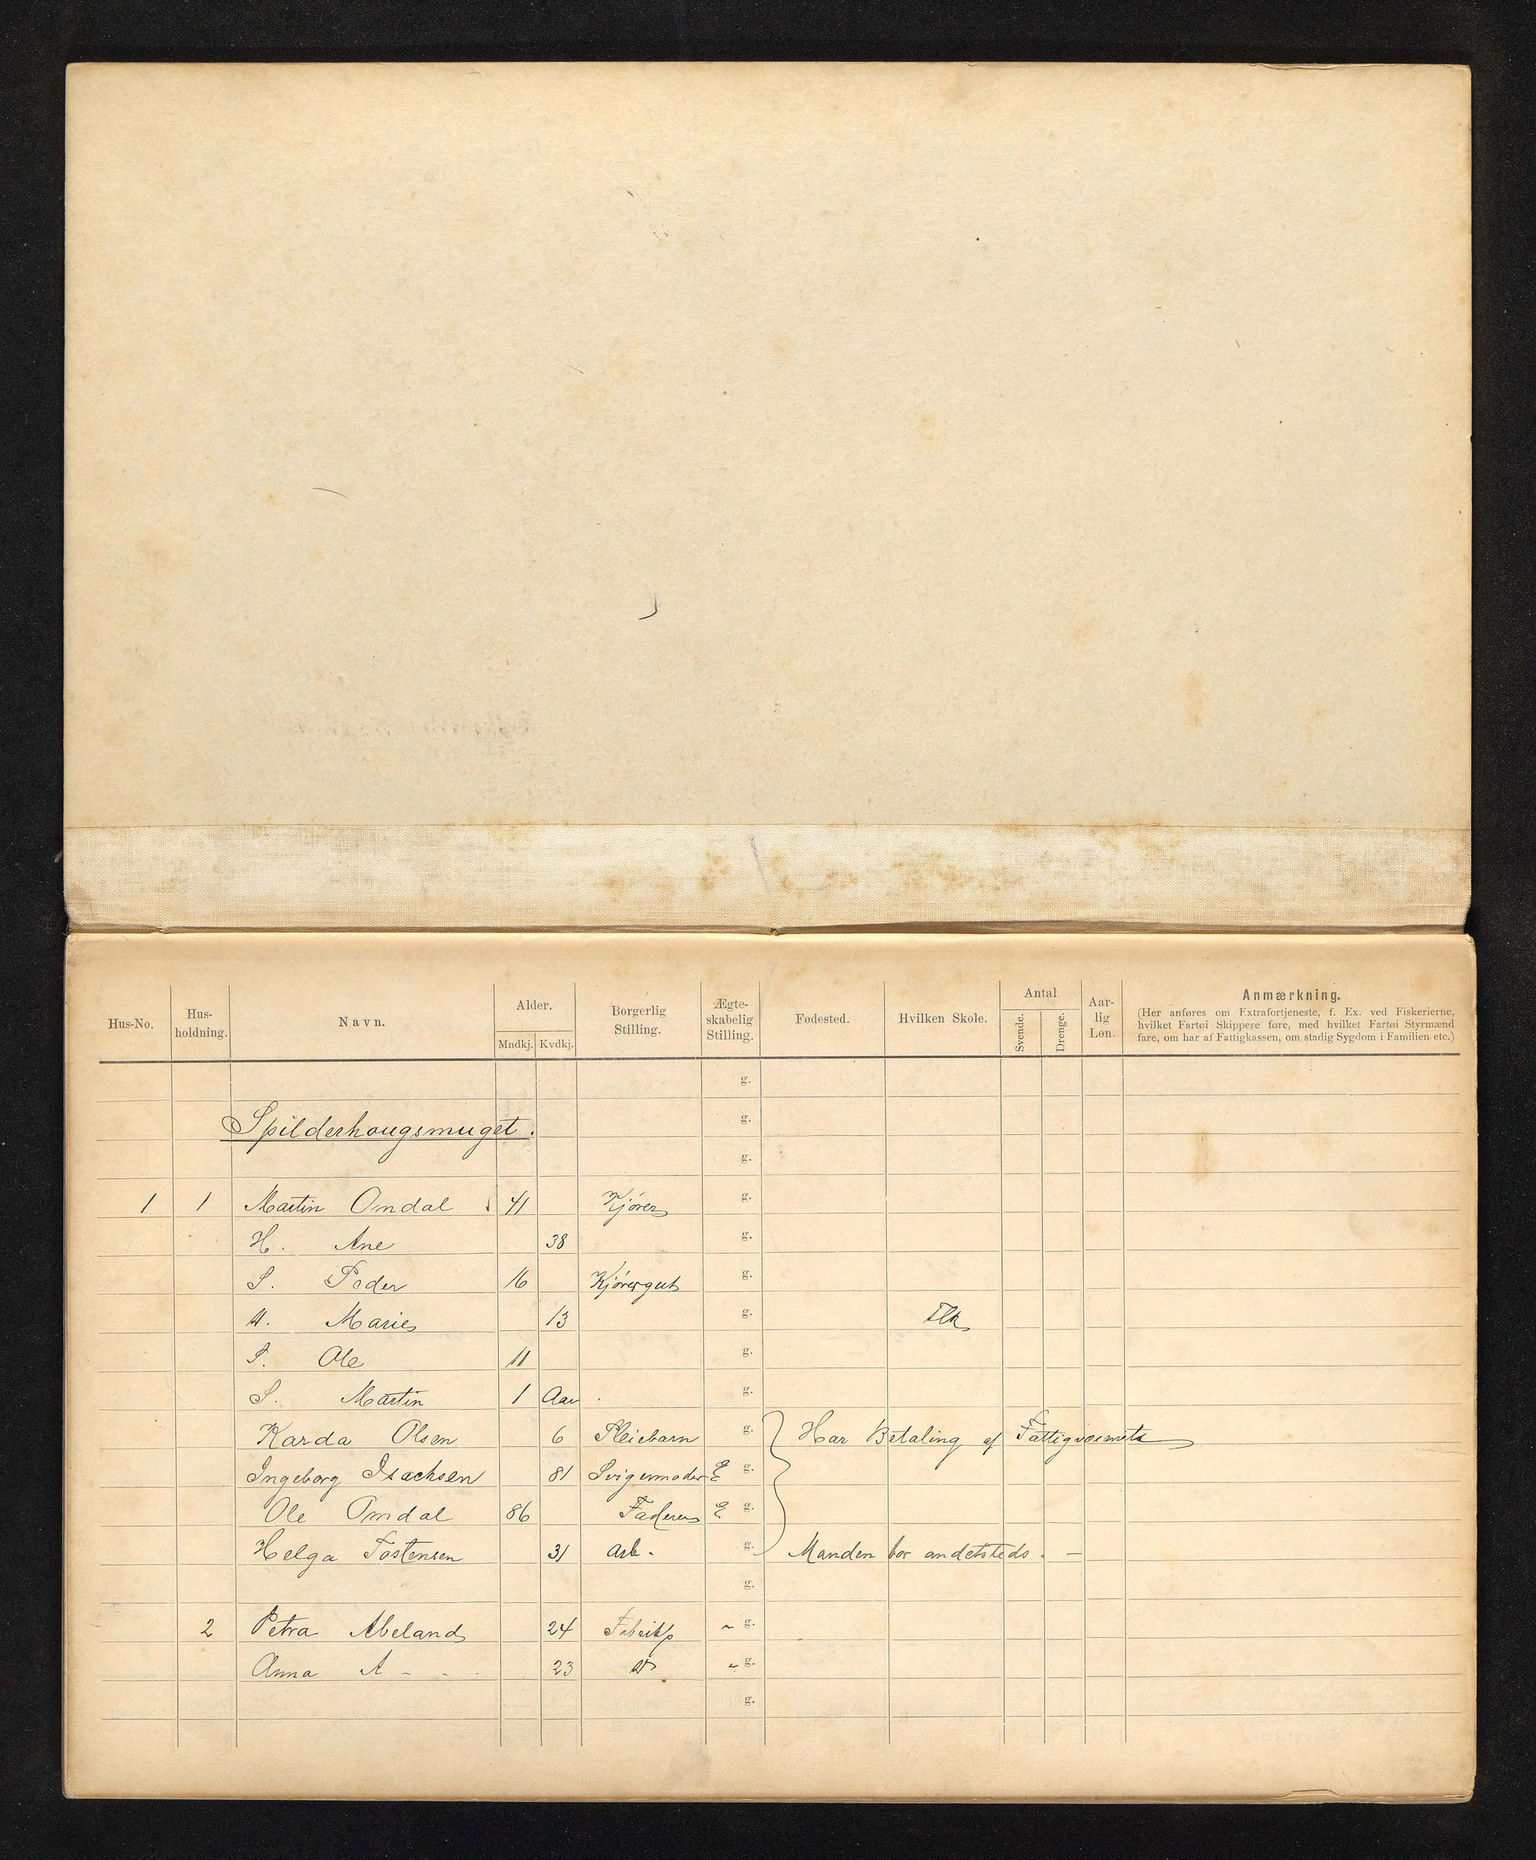 Hus-No. Hus-holdning. Navn. Alder. Mndkj. Kvdkj. Borgerlig Stilling. Ægte-skabelig Stilling. Fødested. Hvilken Skole. Antal Svende. Drenge. Aar-lig Løn. Anmærkning.
(Her anføres om Extrafortjeneste, f. Ex. ved Fiskerierne,
hvilket Fartøi Skippere føre, med hvilket Fartøi Styrmænd
fare, om har af Fattigkassen, om stadig Sygdom i Familien etc.)
g.
Spilderhougsmuget. g.
g.
1 1 Martin Omdal 41 Kjører g.
H. Ane 38 g.
S. Peder 16 Kjørergut g.
D. Marie 13 g. Flk
S. Ole 11 g.
S. Martin 1 Aar g.
Karda Olsen 6 Pleiebarn g. Har Betaling af Fattigvæsenet
Ingeborg Isachsen 81 Svigermoder E g.
Ole Omdal 86 Faderen E g.
Helga Tostensen 31 Arb. g. Manden bor andetsteds. —
g.
2 Petra Abeland 24 Fabrikp " g.
Anna A - - - 23 D " g.
g.